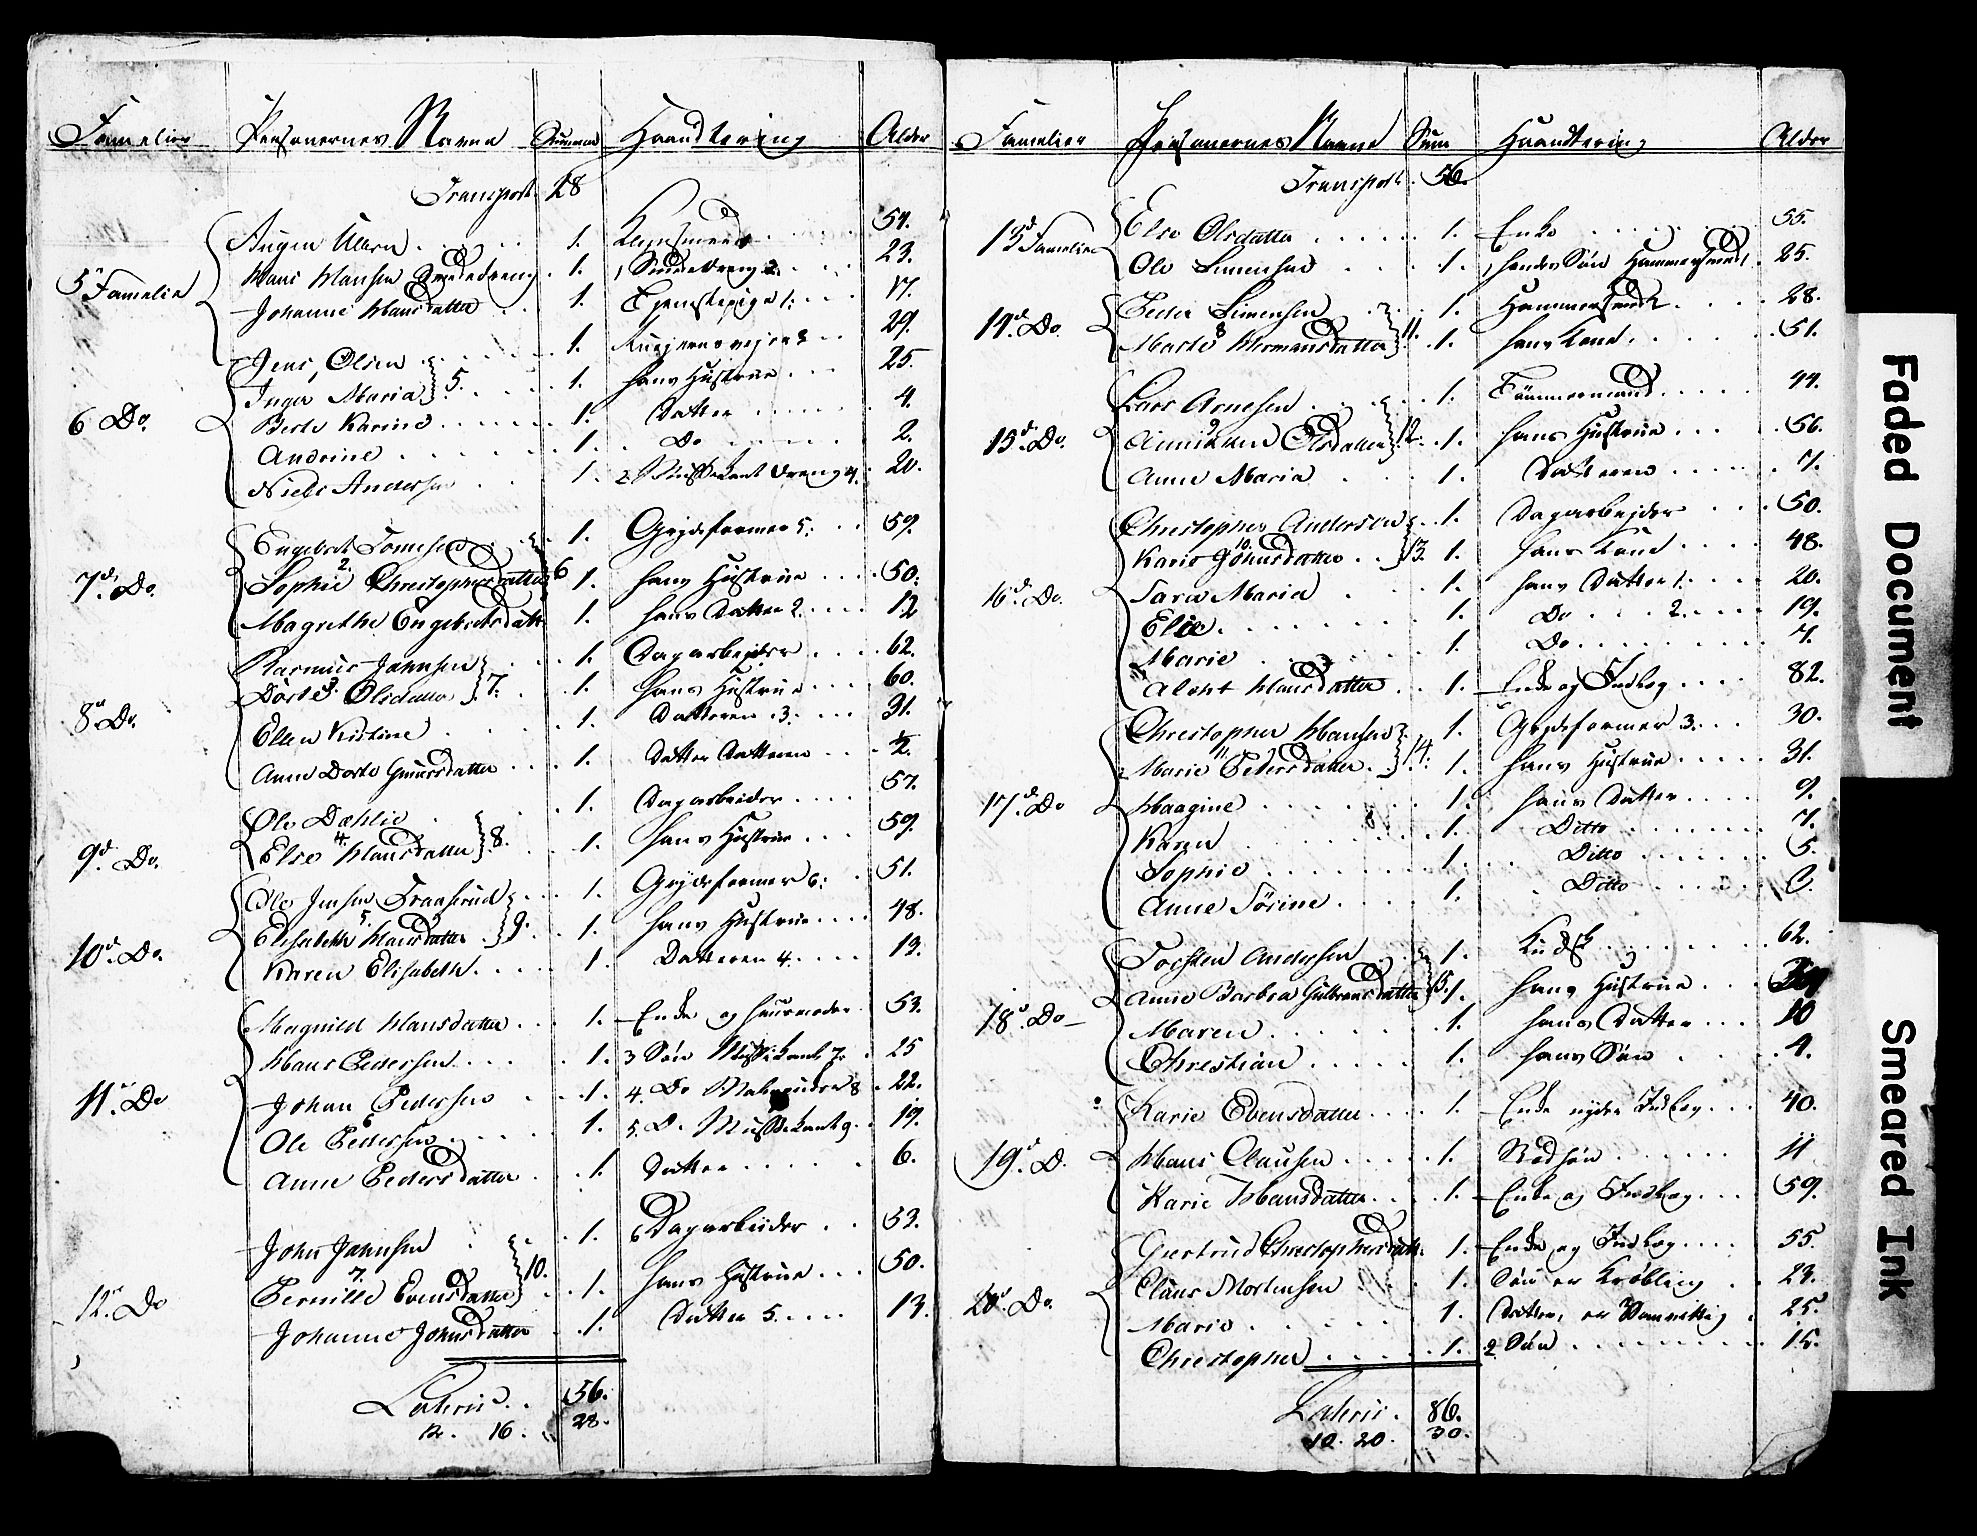 Familier Personernes Navne Summa Haandtering Alder
Transport 28
1. 54.
5te Familie Hans Hansen 1. 23.
Johanne Hansdatter 1. Tjenstepige 1. 17.
Jens Olsen 1. 29.
Inger Maria } 5. 1. hans Hustrue 25.
6 Do. Berte Karine 1. Datter 4.
Andrine 1. Do 2.
Niels Andersen 1. 2 Musikant dreng 4. 20.
Engebret Tomesen 1. Grydeformer 5. 59.
7de Do. Sophie 2. Christophersdatter } 6 1. hans Hustrue 50.
Magrethe Engebretsdatt 1. hans Datter 2. 12
Rasmus Johnsen 1. Dagarbejder 62.
Dorte 3. Olsdatter } 7. 1. hans Hustrue 60.
8de Do. Ellen Kistine 1. Datteren 3. 31.
Anne Dorte 1. Datter Datteren ½.
Ole Dæhlie 1. Dagarbeider 57.
9de Do. Else 4. Hansdatter } 8. 1. hans Hustrue 59.
Ole Jensen 1. Grydeformer 6. 51.
Elisabeth 5. Hansdatter } 9. 1. hans Hustrue 48.
10de Do. Karen Elisabeth 1. Datteren 4. 13.
Magnild Hansdatter 1. Enke og 53.
Hans Pedersen 1. 3 Søn Musikant 7. 25
11te Do Johan Pedersen 1. 4. Do 8 22.
Ole Pedersen 1. 5. Do Musikant 9. 19.
Anne 6 Pedersdatter 1. Datter 6.
John Johnsen 1. 6 Dagarbeider 53.
Pernille 7. Evensdatter } 10. 1. hans Hustrue 50.
12te Do Johanne Johnsdatter 1. Datter 5. 13.
Lateris 56.
12. 16. 28.
Familier Personernes Navne Sum Haandtering Alder
Transport 56.
13de Familie Else Olsdatter 1. Enke 55.
Ole Simensen 1. hendes Søn Hammersmed 1 25.
Peder Simensen 1. Hammersmed 2 28.
14de Do. Marte 8 Hermansdatter } 11. 1. hans Kone 51.
Lars Arnesen 1. Tømmermand 44.
15de Do. 9 Olsdatter } 12. 1. hans Hustrue 56.
Anne Maria 1. Datteren 7.
Christopher Andersen 1. Dagarbejder 50.
Karie 10. Johnsdatter } 13. 1. hans Kone 48.
16de Do. Sara Maria 1. hans Datter 1. 20.
Else 1. Do 2. 19.
Marie 1. Do 7.
Aleht Hansdatter 1. Enke og Indleg 82.
Christopher Hansen 1. Grydeformer 3. 30.
Marie 11 Pedersdatter } 14. 1. hans Hustrue 31.
17de Do Haagine 1. hans Datter 9.
Karen 1. Ditto 7.
Sophie 1. Ditto 5.
Anne Sørine 1. Ditto
Torsten Andersen 1. Kudsk 62.
Anne Barbra Gulbransdatter } 15. 1. hans Hustrue
18de Do Maren 1. hans Datter 10
Christian 1. hans Søn 4.
Karie Evensdatter 1. Enke nyder Indleg 40.
19de D. Hans Clausen 1. 11
Karie Hansdatter 1. Enke og Indleg 59.
Giertrud Christophersdatt. 1. Enke og Indleg 55.
Claus Mortensen 1. Søn er Krøbling 23.
20de Do. Marie 1. Datter, er Vanvittig 25.
Christopher 1. 2 Søn 15.
Lateris 86.
10. 20. 30.
Faded Document
Smeared Ink